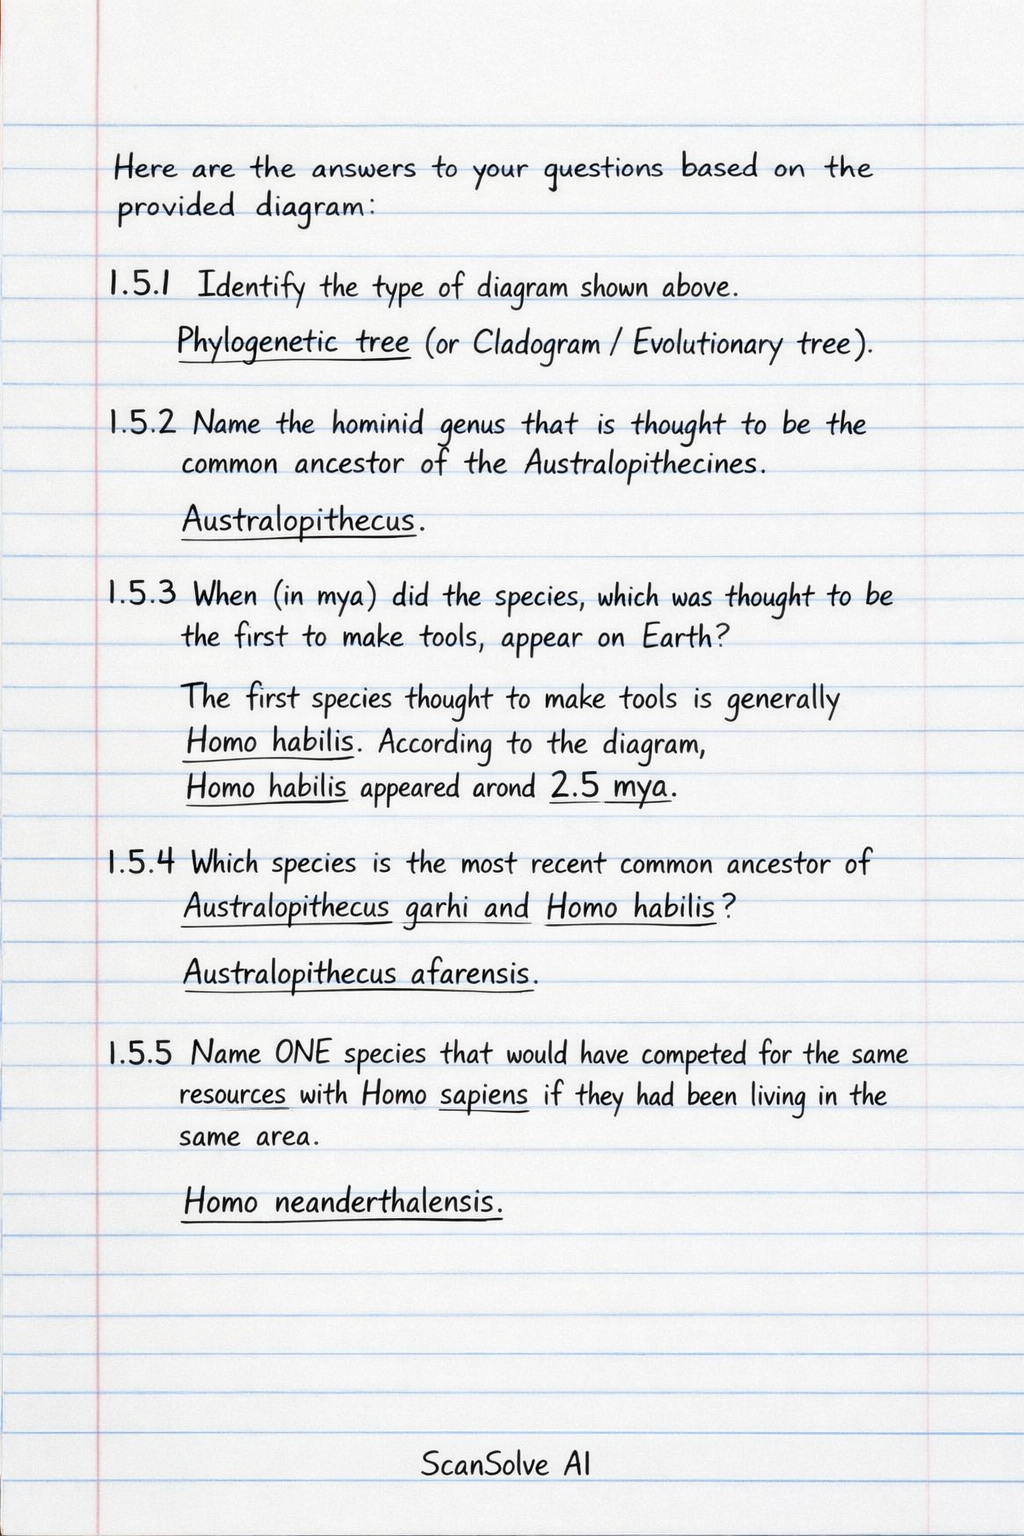 Here are the answers to your questions based on the
provided diagram:
1.5.1 Identify the type of diagram shown above.
Phylogenetic tree (or Cladogram / Evolutionary tree).
1.5.2 Name the hominid genus that is thought to be the
common ancestor of the Australopithecines.
Australopithecus.
1.5.3 When (in mya) did the species, which was thought to be
the first to make tools, appear on Earth?
The first species thought to make tools is generally
Homo habilis. According to the diagram,
Homo habilis appeared arond 2.5 mya.
1.5.4 Which species is the most recent common ancestor of
Australopithecus garhi and Homo habilis?
Australopithecus afarensis.
1.5.5 Name ONE species that would have competed for the same
resources with Homo sapiens if they had been living in the
same area.
Homo neanderthalensis.
ScanSolve AI